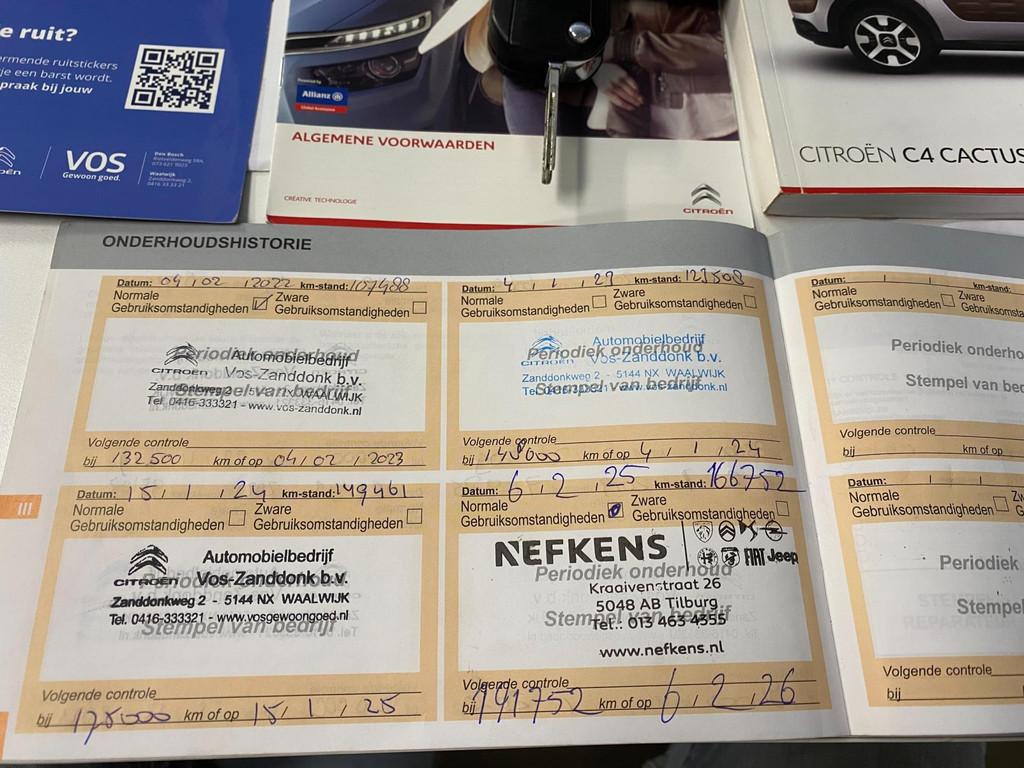 e ruit?
ermende ruitstickers
je een barst wordt.
praak bij jouw
VOS
Gewoon goed.
Den Bosch
073 621 9023
Waalwijk
Zanddonkweg 2,
0416 33 33 21
Powered by
Allianz
ALGEMENE VOORWAARDEN
CREATIVE TECHNOLOGIE
CITROËN
CITROËN C4 CACTUS
ONDERHOUDSHISTORIE
Datum: 04 / 02 / 2022 km-stand: 107488
Normale Gebruiksomstandigheden
Zware Gebruiksomstandigheden
Periodiek onderhoud
Stempel van bedrijf
CITROËN
Automobielbedrijf
Vos-Zanddonk b.v.
Zanddonkweg 2 - 5144 NX WAALWIJK
Tel. 0416-333321 - www.vos-zanddonk.nl
Volgende controle
bij 132500 km of op 04 / 02 / 2023
Datum: 4 / 1 / 23 km-stand: 123508
Normale Gebruiksomstandigheden
Zware Gebruiksomstandigheden
Periodiek onderhoud
Stempel van bedrijf
CITROËN
Automobielbedrijf
Vos-Zanddonk b.v.
Zanddonkweg 2 - 5144 NX WAALWIJK
Tel. 0416-333321 - www.vos-zanddonk.nl
Volgende controle
bij 148000 km of op 4 / 1 / 24
III
Datum: 15 / 1 / 24 km-stand: 149461
Normale Gebruiksomstandigheden
Zware Gebruiksomstandigheden
Periodiek onderhoud
Stempel van bedrijf
CITROËN
Automobielbedrijf
Vos-Zanddonk b.v.
Zanddonkweg 2 - 5144 NX WAALWIJK
Tel. 0416-333321 - www.vosgewoongoed.nl
Volgende controle
bij 175000 km of op 15 / 1 / 25
Datum: 6 / 2 / 25 km-stand: 166752
Normale Gebruiksomstandigheden
Zware Gebruiksomstandigheden
Periodiek onderhoud
Stempel van bedrijf
NEFKENS
FIAT Jeep
Kraaivenstraat 26
5048 AB Tilburg
Tel.: 013 463 4355
www.nefkens.nl
Volgende controle
bij 191752 km of op 6 / 2 / 26
Datum: / / km-stand:
Normale
Gebruiksomstandigheden
Zware
Gebruiksomsta
Periodiek onderho
Stempel van bed
Volgende controle
bij km of op
Datum: / / km-
Normale
Gebruiksomstandigheden
Periodiek
Stempel
Volgende controle
bij km